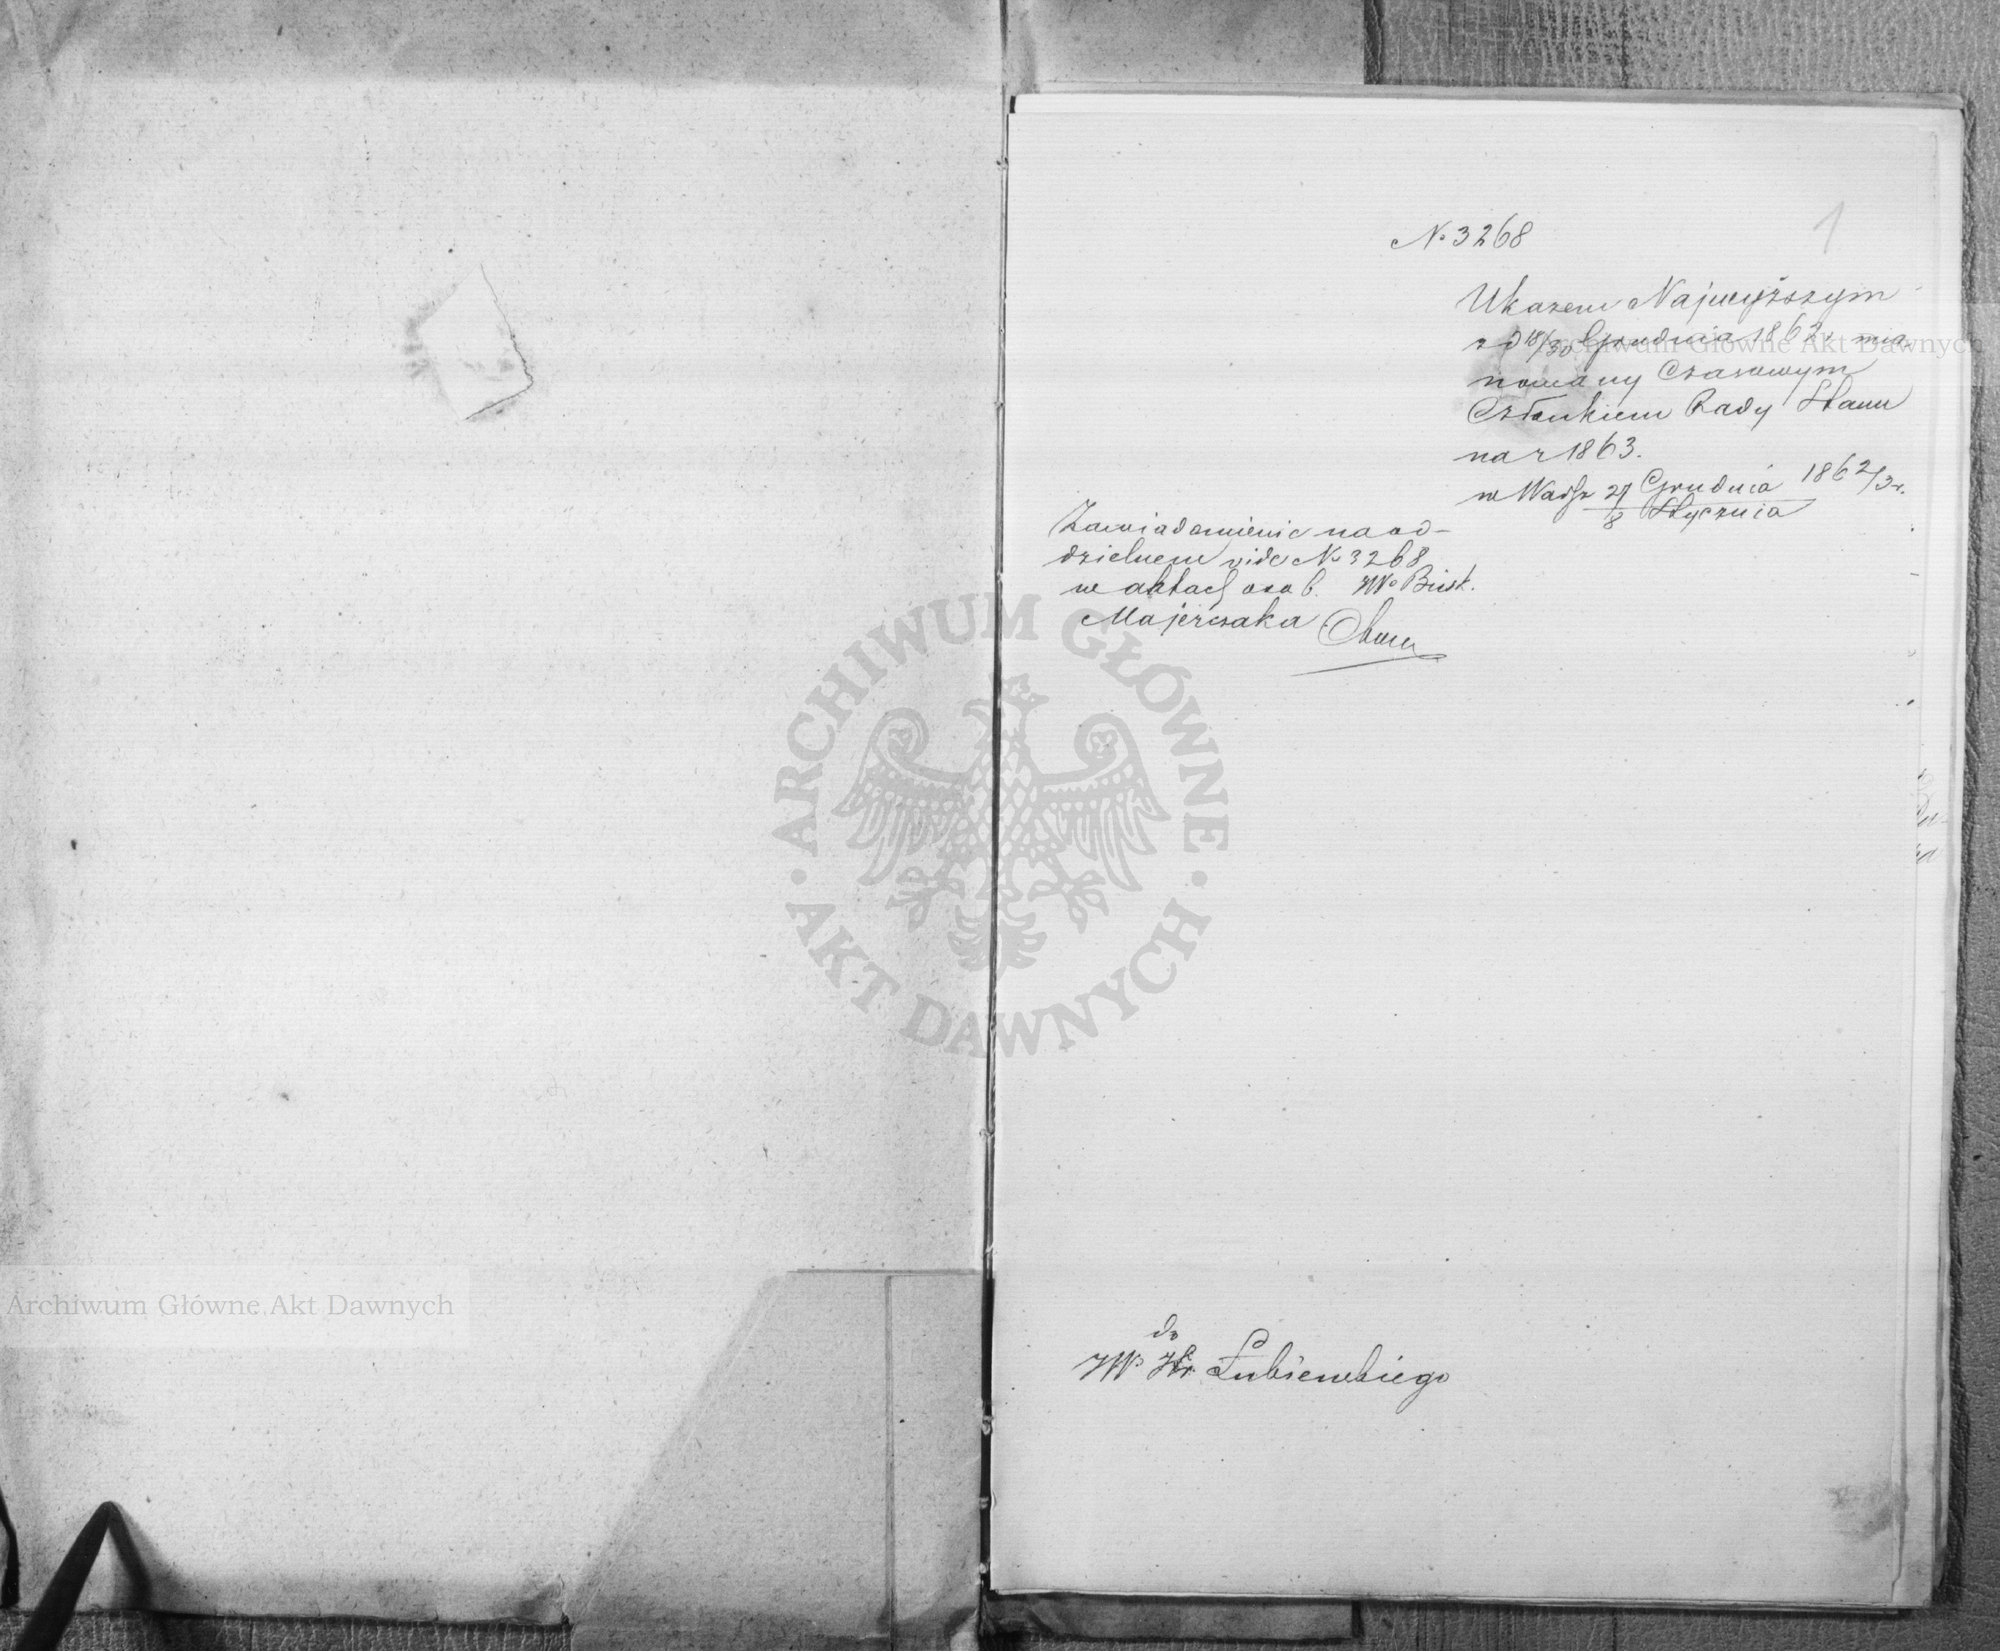 1
No 3268
Ukazem Najwyższym
z d 18/30 Grudnia 1862 r mia
nowany Czasowym
Członkiem Rady Stanu
na r 1863.
w Warsz 27 Grudnia 1862/3 r.
8 Stycznia
Zawiadomienie na od-
dzielnem vide No 3268
w aktach osob. JW. Bisk.
Majerczaka
do
JW Hr Łubieńskiego
Archiwum Główne Akt Dawnych
ARCHIWUM GŁÓWNE
AKT DAWNYCH
Archiwum Główne Akt Dawnych